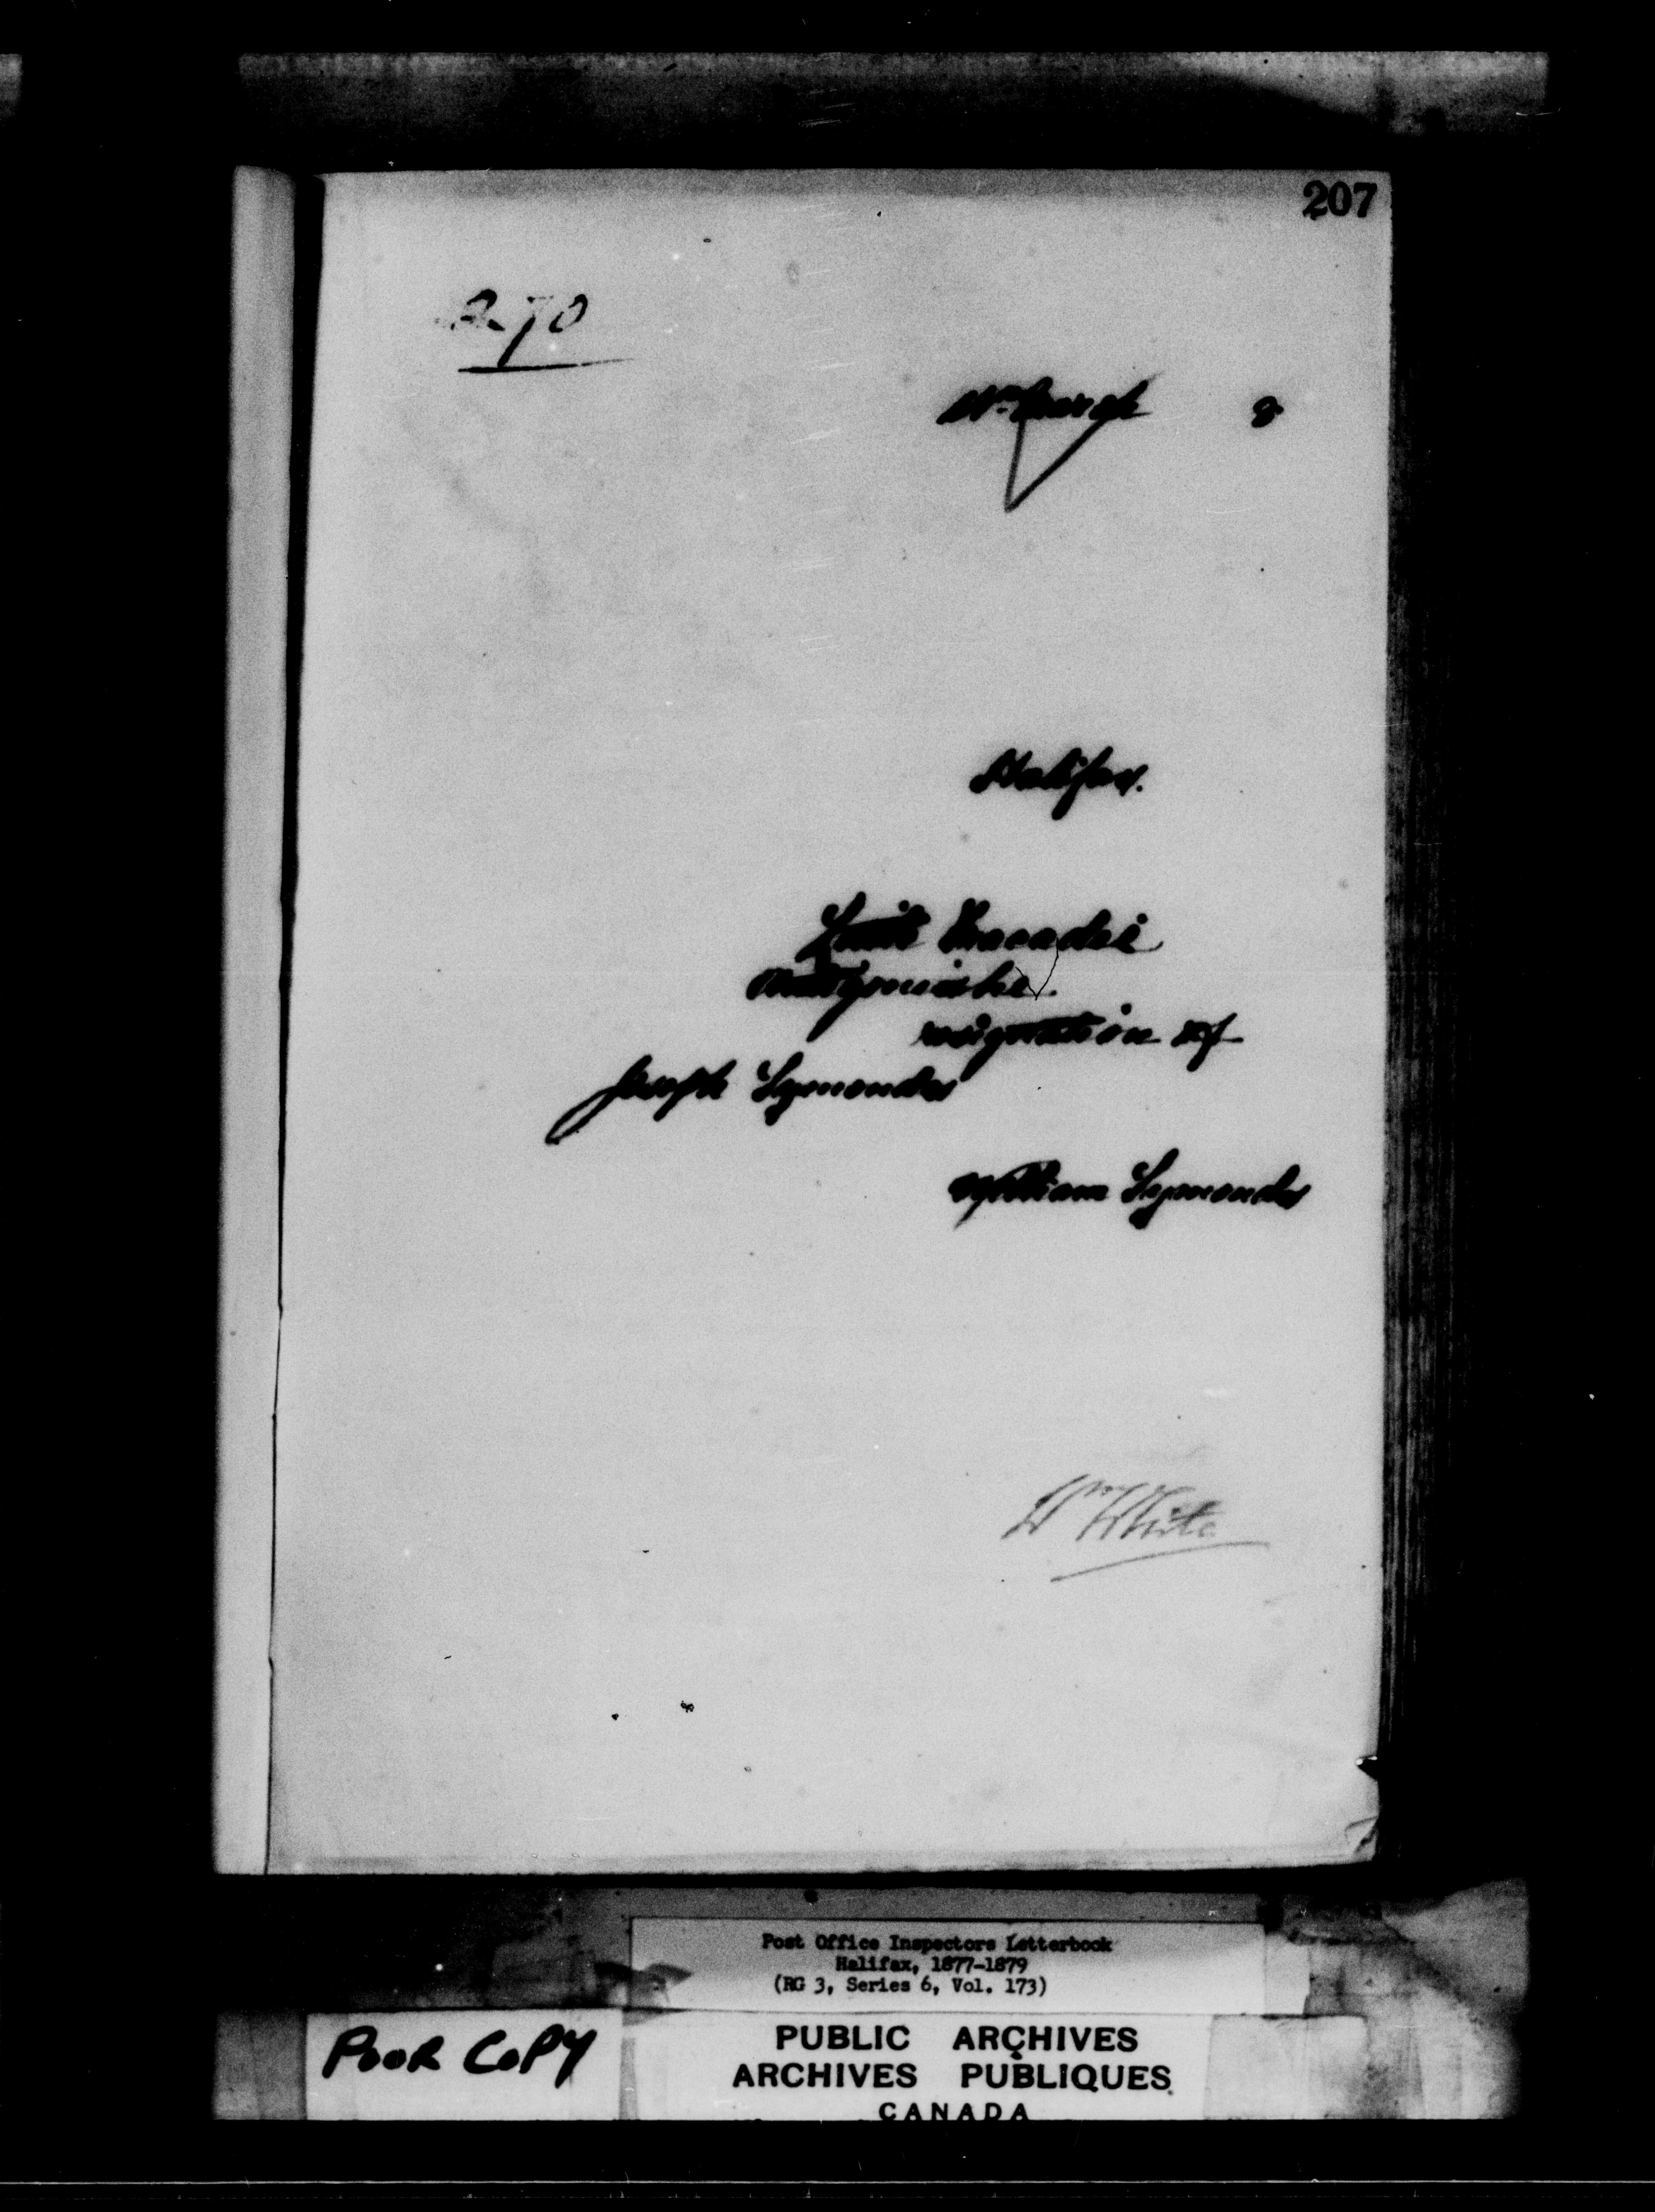 207
270
8
Halifax.
Tracadie
Antigonishe.
resignation of
Joseph Symonds
William Symonds
Wm White
Post Office Inspectors Letterbook
Halifax, 1877-1879
(RG 3, Series 6, Vol. 173)
POOR COPY
PUBLIC ARCHIVES
ARCHIVES PUBLIQUES
CANADA